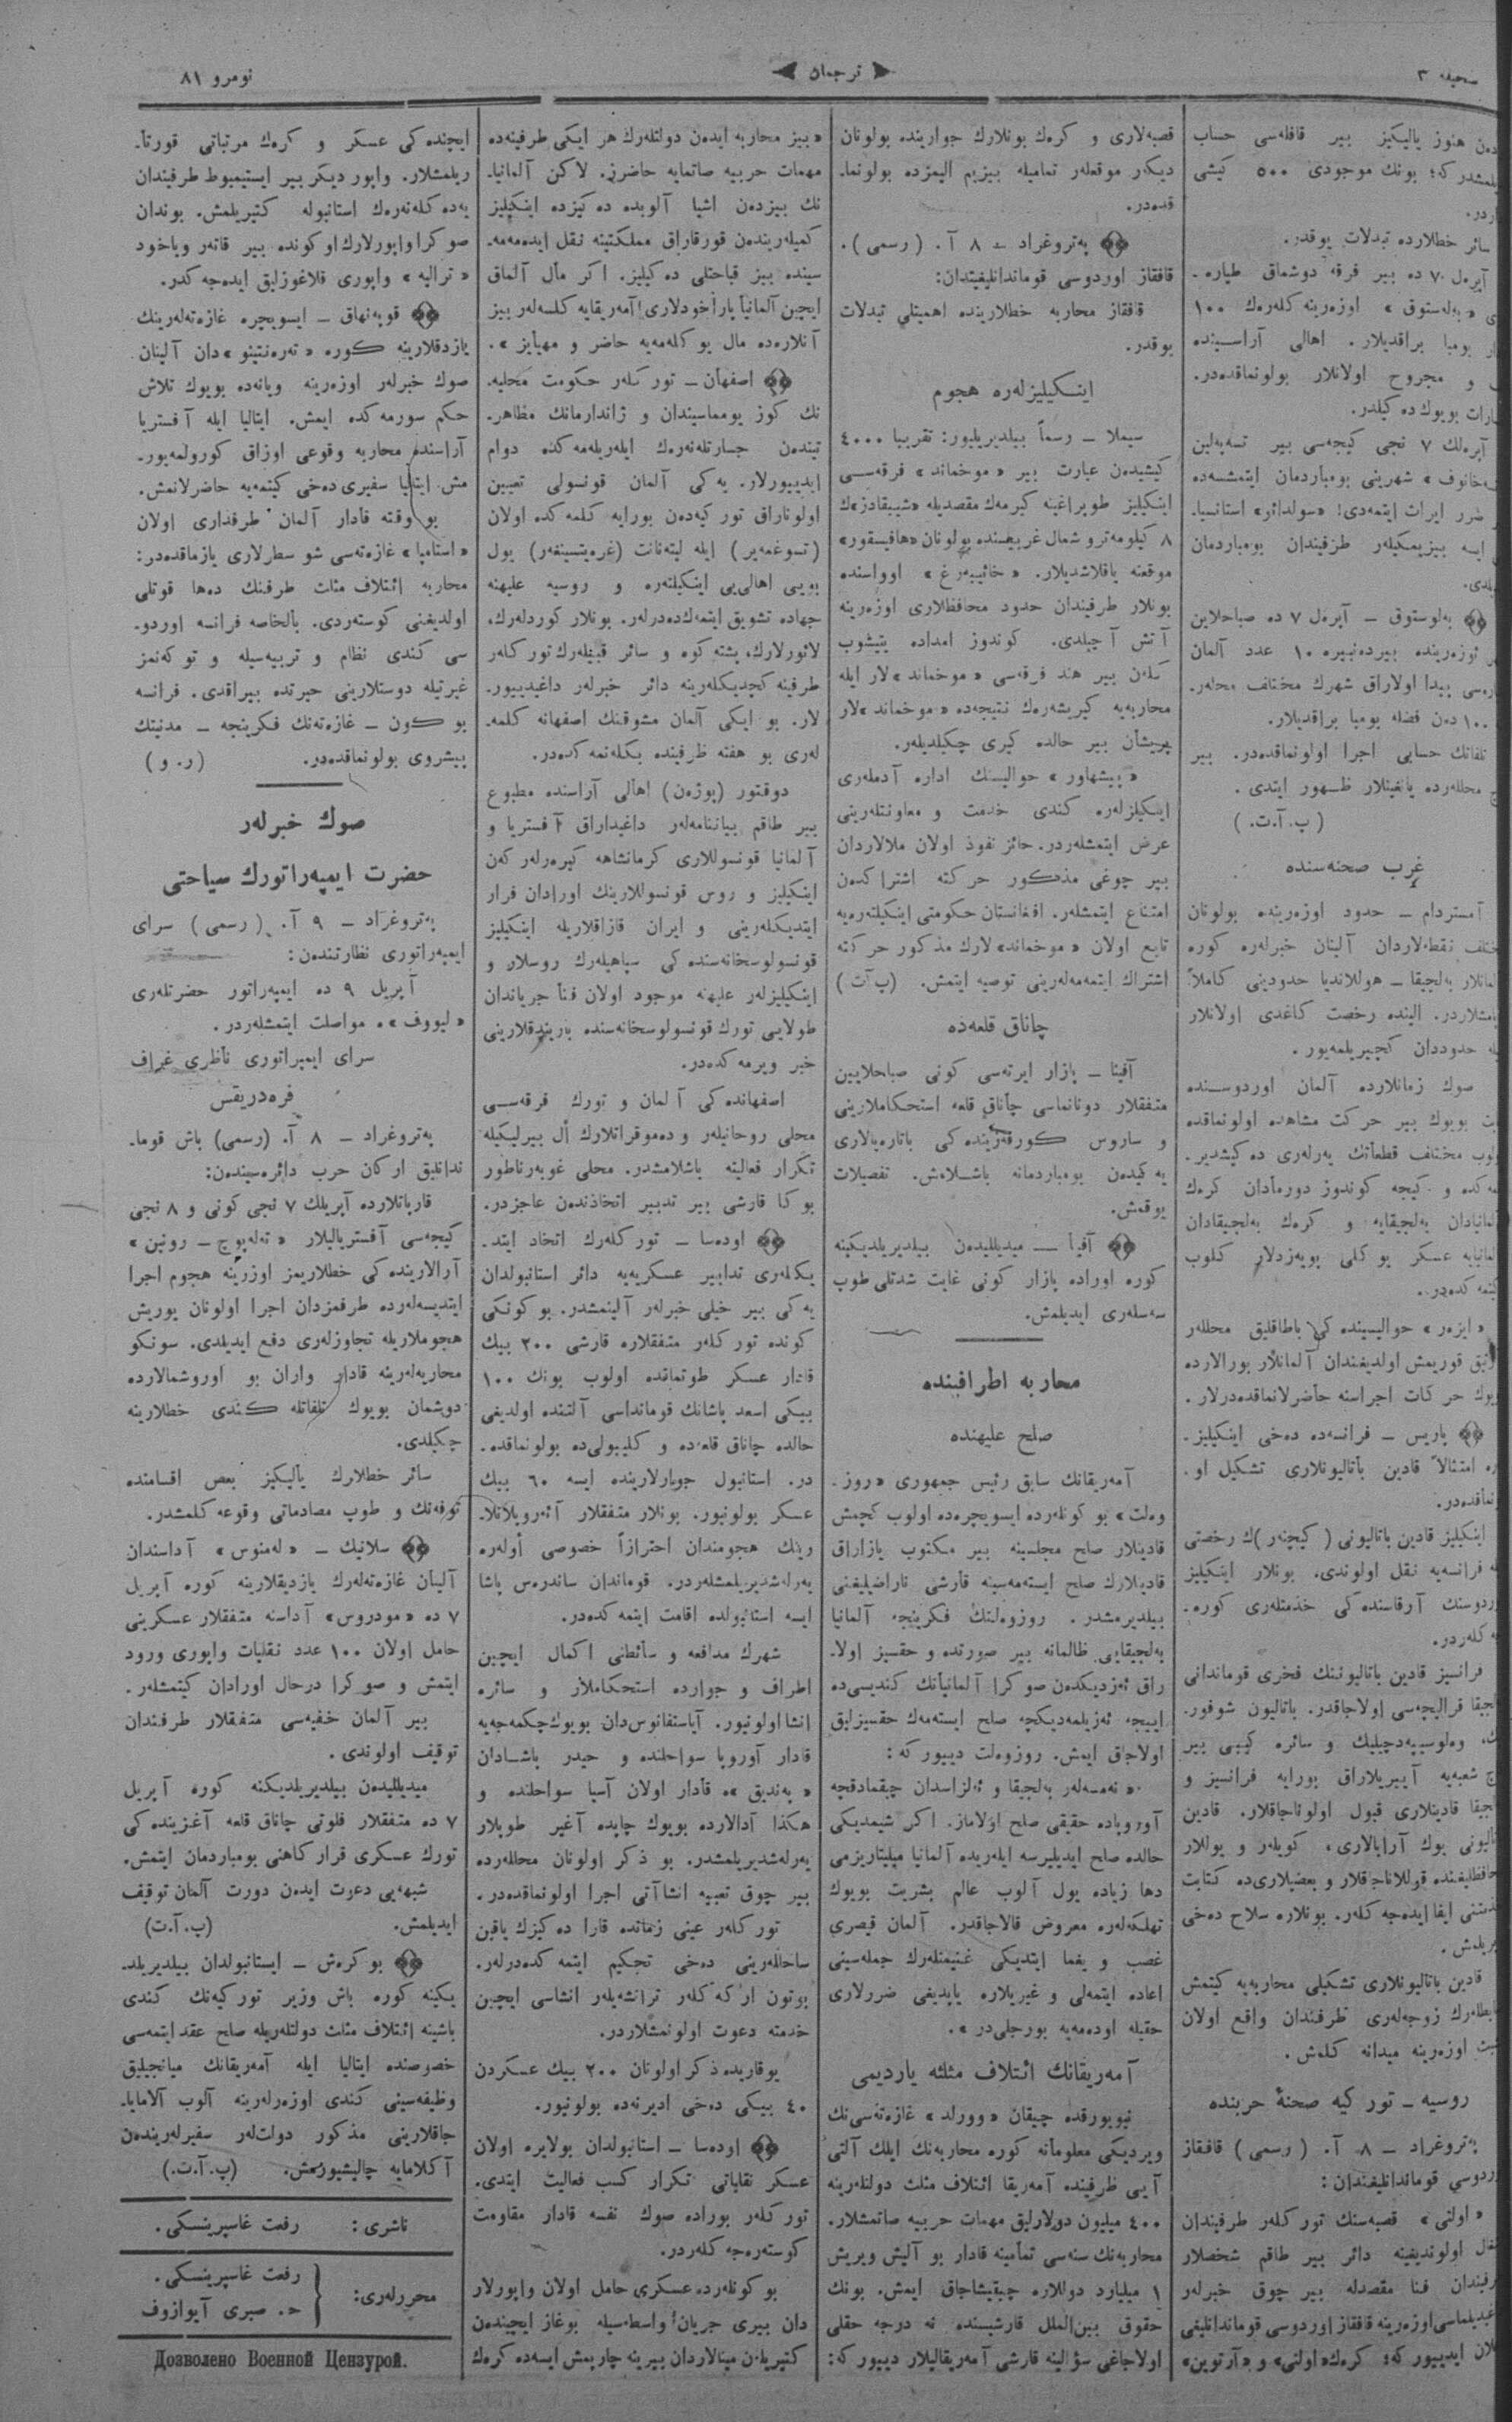 صحيفه ٣
ترجمان
نومرو ٨١
هنوز ياليكيز بير قافله‌سى حساب
كه؛ بونك موجودى ٥٠٠ كيشى
سائر خطلارده تبدلات يوقدر.
آپره‌ل ٧ ده بير فرقه دوشماق طياره‌ـ
اوزه‌رينه كله‌رك ١٠٠
بومبا براقديلار. اهالى آراسينده
و مجروح اولانلار بولونماقده‌در.
بويوك ده كيلدر.
آپره‌لك ٧ نجى كيجه‌سى بير تسه‌په‌لين
شهرينى بومباردمان ايتمشسه‌ده
ضرر ايراث ايتمه‌دى!
ايسه بيزيمكيلر طرفيندان بومباردمان
به‌لوستوق – آپره‌ل ٧ ده صباحلاين
اوزه‌رينده بيردنبيره ١٠ عدد آلمان
پيدا اولاراق شهرك مختلف محله‌لر
١٠٠ دن فضله بومبا براقديلار.
تلفاتك حسابى اجرا اولونماقده‌در. بير
محللرده يانغينلار ظهور ايتدى.
(پ. آ. ت.)
غرب صحنه‌سنده
آمستردام – حدود اوزه‌رينده بولونان
نقطه‌لاردان آلينان خبرلره كوره
به‌لجيقا – هوللانديا حدودينى كاملاً
الينده رخصت كاغدى اولانلار
حدوددان كچيريلمه‌يور.
صوك زمانلارده آلمان اوردوسنده
بويوك بير حركت مشاهده اولونماقده
مختلف قطعاتك يه‌رلرى ده كيشدير.
و كيجه كوندوز دورمادان كرك
به‌لجيقايه و كرك به‌لجيقادان
عسكر يوكلى بويه‌زدلار كلوب
«ايزه‌ر» حواليسينده كى باطاقليق محللر
قوريمش اولديغندان آلمانلار بورالارده
حركات اجراسنه حاضرلانماقده‌درلار.
پاريس – فرانسه‌ده دخى اينكيليز.
امتثالاً قادين باتاليونلارى تشكيل او.
اينكيليز قادين باتاليونى (كيچنه‌ر) ك رخصتى
فرانسه‌يه نقل اولوندى. بونلار اينكيليز
آرقاسنده كى خدمتلرى كوره.
فرانسيز قادين باتاليونينك فخرى قوماندانى
قراليچه‌سى اولاجاقدر. باتاليون شوفور.
وه‌لوسيپه‌دچيليك و سائره كيبى بير
شعبه‌يه آييريلاراق بورايه فرانسيز و
قادينلارى قبول اولوناجاقلار. قادين
يوك آرابالارى، كويلر و يوللار
قوللاناجاقلار و بعضيلارى‌ده كتابت
ايفا ايده‌جه كلر. بونلاره سلاح دخى
قادين باتاليونلارى تشكيلى محاربه‌يه كيتمش
زوجه‌لرى طرفندان واقع اولان
اوزه‌رينه ميدانه كلمش.
روسيه – توركيه صحنهٔ حربنده
په‌تروغراد – ٨ آ. (رسمى) قافقاز
قومانداانليغندان:
«اولتى» قصبه‌سنك توركلر طرفيندان
اولونديغينه دائر بير طاقم شخصلار
فنا مقصدله بير چوق خبرلر
اوزه‌رينه قافقاز اوردوسى قوماندانليغى
ايديور كه: كرك «اولتى» و «آرتوين»
قصبه‌لارى و كرك بونلارك جوارينده بولونان
ديكر موقعلر تماميله بيزيم اليمزده بولونما.
قده‌در.
په‌تروغراد – ٨ آ. (رسمى).
قافقاز اوردوسى قوماندانليغيندان:
قافقاز محاربه خطلارينده اهميتلى تبدلات
يوقدر.
اينكيليزلره هجوم
سيملا – رسماً بيلديريليور: تقريبا ٤٠٠٠
كيشيدن عبارت بير «موخماند» فرقه‌سى
اينكيليز طوپراغينه كيرمك مقصديله «شبيقادز»ك
٨ كيلومه‌ترو شمال غربيسنده بولونان «هافيسقور»
موقعنه ياقلاشديلار. اوواسنده
بونلار طرفيندان حدود محافظلارى اوزه‌رينه
آتش آچيلدى. كوندوز امداده يتيشوب
كلن بير هند فرقه‌سى «موخماند» لار ايله
محاربه‌يه كيريشه‌رك نتيجه‌ده «موخماند» لار
پريشان بير حالده كيرى چكيلديلر.
«پيشهاور» حواليسنك اداره آدملرى
اينكيلزلره كندى خدمت و معاونتلرينى
عرض ايتمشلردر. حائز نفوذ اولان ملالاردان
بير چوغى مذكور حركته اشتراكدن
امتناع ايتمشلر. افغانستان حكومتى اينكيلتره‌يه
تابع اولان «موخماند» لارك مذكور حركته
اشتراك ايتمه‌مه‌لرينى توصيه ايتمش. (پ آ ت)
چاناق قلعه‌ده
آفينا – پازار ايرته‌سى كونى صباحلايين
متفقلار دونانماسى چاناق قلعه استحكاملارينى
و ساروس كورفه‌زينده كى باتاريالارى
يه كيدن بومباردمانه باشلامش. تفصيلات
يوقمش.
آفينا – ميديللیدن بيلديريلديكينه
كوره اوراده پازار كونى غايت شدتلى طوپ
سه‌سلرى ايديلمش.
محاربه اطرافينده
صلح عليهنده
آمه‌ريقانك سابق رئيس جمهورى «روز.
وه‌لت» بو كونلرده ايسويچره‌ده اولوب كچمش
قادينلار صلح مجلسينه بير مكتوب يازاراق
قادينلارك صلح ايسته‌مه‌سينه قارشى ناراضيليغنى
بيلديرمشدر. روزوه‌لتك فكرينجه آلمانيا
به‌لجيقايى ظالمانه بير صورتده و حقسيز اولا.
راق ئه‌زديكدن صوكرا آلمانيانك كنديسى‌ده
اييجه ئه‌زيلمه‌ديكچه صلح ايسته‌مك حقسيزليق
اولاجاق ايمش. روزوه‌لت دييور كه:
«نه‌مسه‌لر به‌لجيقا و ئه‌لزاسدان چيقمادقچه
آوروپاده حقيقى صلح اولاماز. اكر شيمديكى
حالده صلح ايديليرسه ايله‌ريده آلمانيا ميليتاريزمى
دها زياده يول آلوب عالم بشريت بويوك
تهلكه‌لره معروض قالاجاقدر. آلمان قيصرى
غصب و يغما ايتديكى غنيمتلرك جمله‌سينى
اعاده ايتمه‌لى و غيريلاره ياپديغى ضررلارى
حقيله اوده‌مه‌يه بورجلى‌در».
آمه‌ريقانك ائتلاف مثلثه يارديمى
نيويورقده چيقان «وورلد» غازه‌ته‌سى‌نك
ويرديكى معلوماته كوره محاربه‌نك ايلك آلتى
آيى ظرفينده آمه‌ريقا ائتلاف مثلث دولتلرينه
٤٠٠ ميليون دولارليق مهمات حربيه صاتمشلار.
محاربه‌نك سنه‌سى تمامينه قادار بو آليش ويريش
١ ميليارد دوللاره چيقيشاجاق ايمش. بونك
حقوق بين‌الملل قارشيسنده نه درجه حقلى
اولاجاغى سؤالينه قارشى آمه‌ريقاليلار دييور كه:
«بيز محاربه ايدن دولتلرك هر ايكى طرفينه‌ده
مهمات حربيه صاتمايه حاضرز. لاكن آلمانيا.
نك بيزدن اشيا آلوبده ده‌كيزده اينكيليز
كميلريندن قورقاراق مملكتينه نقل ايده‌مه‌مه.
سينده بيز قباحتلى ده كيليز. اكر مال آلماق
ايچين آلمانيا ياراخودلارى آمه‌ريقايه كلسه‌لر بيز
آنلارده مال يوكلمه‌يه حاضر و مهيايز».
اصفهان – توركلر حكومت محليه.
نك كوز يومماسيندان و ژاندارمانك مظاهر.
تيندن جسارتله‌نه‌رك ايله‌ريله‌مه كده دوام
ايدييورلار. يه كى آلمان قونسولى تعيين
اولوناراق توركيه‌دن بورايه كلمه كده اولان
ايله ليتنانت يول
بويى اهالى‌يى اينكيلتره و روسيه عليهنه
جهاده تشويق ايتمه‌كده‌درلر. بونلار كوردلرك،
لائورلارك، پشته كوه و سائر قبيله‌لرك توركلر
طرفينه كچديكلرينه دائر خبرلر داغيدييور.
لار. بو ايكى آلمان مشوقينك اصفهانه كلمه.
لرى بو هفته ظرفينده بكله‌نمه كده‌در.
دوقتور (پوژه‌ن) اهالى آراسنده مطبوع
بير طاقم بياننامه‌لر داغيداراق آفستريا و
آلمانيا قونسوللارى كرمانشاهه كيره‌رلر كن
اينكيليز و روس قونسوللارينك اورادان فرار
ايتديكلرينى و ايران قازاقلاريله اينكيليز
قونسولوسخانه‌سنده كى سپاهيلرك روسلار و
اينكيليزلر عليهنه موجود اولان فنا جرياندان
طولايى تورك قونسولوسخانه‌سنده ياريندقلارينى
خبر ويرمه كده‌در.
اصفهانده كى آلمان و تورك فرقه‌سى
محلى روحانيلر و ده‌موقراتلارك أل بيرليكيله
تكرار فعاليته باشلامشدر. محلى غوبه‌رناطور
بوكا قارشى بير تدبير اتخاذندن عاجزدر.
اودسا – توركلرك اتخاذ ايتد.
يكلرى تدابير عسكريه‌يه دائر استانبولدان
يه كى بير خيلى خبرلر آلينمشدر. بو كونكى
كونده توركلر متفقلاره قارشى ٢٠٠ بيك
قادار عسكر طوتماقده اولوب بونك ١٠٠
بيكى اسعد پاشانك قومانداسى آلتنده اولديغى
حالده چاناق قلعه‌ده و كليبولى‌ده بولونماقده.
در. استانبول جوارلارينده ايسه ٦٠ بيك
عسكر بولونيور. بونلار متفقلار آئه‌روپلانلا.
رينك هجومندان احترازاً خصوصى أولره
يه‌رله‌شديريلمشلردر. قوماندان ساندرس پاشا
ايسه استانبولده اقامت ايتمه كده‌در.
شهرك مدافعه و سائطنى اكمال ايچين
اطراف و جوارده استحكاملار و سائره
انشا اولونيور. آياستفانوس‌دان بويوك‌چكمه‌جه‌يه
قادار آوروپا سواحلنده و حيدر پاشادان
«په‌نديق»ه قادار اولان آسيا سواحلنده و
هكذا آدالارده بويوك چاپده آغير طوپلار
يه‌رله‌شديريلمشدر. بو ذكر اولونان محللرده
بير چوق تعبيه انشاآتى اجرا اولونماقده‌در.
توركلر عينى زمانده قارا ده كيزك ياقين
ساحللرينى دخى تحكيم ايتمه كده‌درلر.
بوتون ار كه كلر ترانشه‌يلر انشاسى ايچين
خدمته دعوت اولونمشلاردر.
يوقاريده ذكر اولونان ٢٠٠ بيك عسكردن
٤٠ بيكى دخى اديرنه‌ده بولونيور.
اودسا – استانبولدان بولايره اولان
عسكر نقلياتى تكرار كسب فعاليت ايتدى.
توركلر بوراده صوك نفسه قادار مقاومت
كوستره‌جه كلردر.
بو كونلرده عسكرى حامل اولان واپورلار
دان بيرى جريان واسطه‌سيله بوغاز ايچيندن
كتيريلن مينالاردان بيرينه چارپمش ايسه‌ده كرك
ايچنده كى عسكر و كرك مرتباتى قورتا.
ريلمشلار. واپور ديكر بير ايستيمبوط طرفيندان
يه‌ده كله‌نه‌رك استانبوله كتيريلمش. بوندان
صوكرا واپورلارك اوكونده بير قاتر وياخود
«تراليه» واپورى قلاغوزليق ايده‌جه كدر.
قوپه‌نهاق – ايسويچره غازه‌ته‌لرينك
يازدقلارينه كوره «ته‌ره‌نتينو» دان آلينان
صوك خبرلر اوزه‌رينه ويانه‌ده بويوك تلاش
حكم سورمه كده ايمش. ايتاليا ايله آفستريا
آراسنده محاربه وقوعى اوزاق كورولمه‌يور.
مش. ايتاليا سفيرى دخى كيتمه‌يه حاضرلانمش.
بو وقته قادار آلمان طرفدارى اولان
«استامپا» غازه‌ته‌سى شو سطرلارى يازماقده‌در:
محاربه ائتلاف مثلث طرفنك دها قوتلى
اولديغنى كوستردى. بالخاصه فرانسه اوردو.
سى كندى نظام و تربيه‌سيله و توكه‌نمز
غيرتيله دوستلارينى حيرتده بيراقدى. فرانسه
بو كون – غازه‌ته‌نك فكرينجه – مدنيتك
پيشروى بولونماقده‌در. (ر. و)
صوك خبرلر
حضرت ايمپه‌راتورك سياحتى
په‌تروغراد – ٩ آ. (رسمى) سراى
ايمپه‌راتورى نظارتندن:
آپريل ٩ ده ايمپه‌راتور حضرتلرى
«ليووف»ه مواصلت ايتمشلردر.
سراى ايمپراتورى ناظرى غراف
فره‌دريقس
په‌تروغراد – ٨ آ. (رسمى) باش قوما.
ندانليق اركان حرب دائره‌سيندن:
قارپاتلارده آپريلك ٧ نجى كونى و ٨ نجى
كيجه‌سى آفسترياليلار «ته‌له‌پوچ – روتين»
آرالارينده كى خطلاريمز اوزرينه هجوم اجرا
ايتديسه‌لرده طرفمزدان اجرا اولونان يوريش
هجوملاريله تجاوزلرى دفع ايديلدى. سونكو
محاربه‌لرينه قادار واران بو اوروشمالارده
دوشمان بويوك تلفاتله كندى خطلارينه
چكيلدى.
سائر خطلارك ياليكيز بعض اقسامنده
توفه‌نك و طوپ مصادماتى وقوعه كلمشدر.
سلانيك – «له‌منوس» آداسندان
آلينان غازه‌ته‌لرك يازديقلارينه كوره آپريل
٧ ده «مودروس» آداسنه متفقلار عسكرينى
حامل اولان ١٠٠ عدد نقليات واپورى ورود
ايتمش و صوكرا درحال اورادان كيتمشلر.
بير آلمان خفيه‌سى متفقلار طرفندان
توقيف اولوندى.
ميديللیدن بيلديريلديكنه كوره آپريل
٧ ده متفقلار فلوتى چاناق قلعه آغزينده كى
تورك عسكرى قراركاهنى بومباردمان ايتمش.
شبهه‌يى دعوت ايدن دورت آلمان توقيف
ايديلمش. (پ. آ. ت)
بوكرش – ايستانبولدان بيلديريلد.
يكينه كوره باش وزير توركيه‌نك كندى
باشينه ائتلاف مثلث دولتلريله صلح عقد ايتمه‌سى
خصوصنده ايتاليا ايله آمه‌ريقانك ميانجيليق
وظيفه‌سينى كندى اوزه‌رلرينه آلوب آلامايا.
جاقلارينى مذكور دولت‌لر سفيرلريندن
آكلامايه چاليشيورمش. (پ. آ. ت.)
ناشرى: رفعت غاسپرينسكى.
محررلرى: رفعت غاسپرينسكى.
ح. صبرى آيوازوف
Дозволено Военной Цензурой.